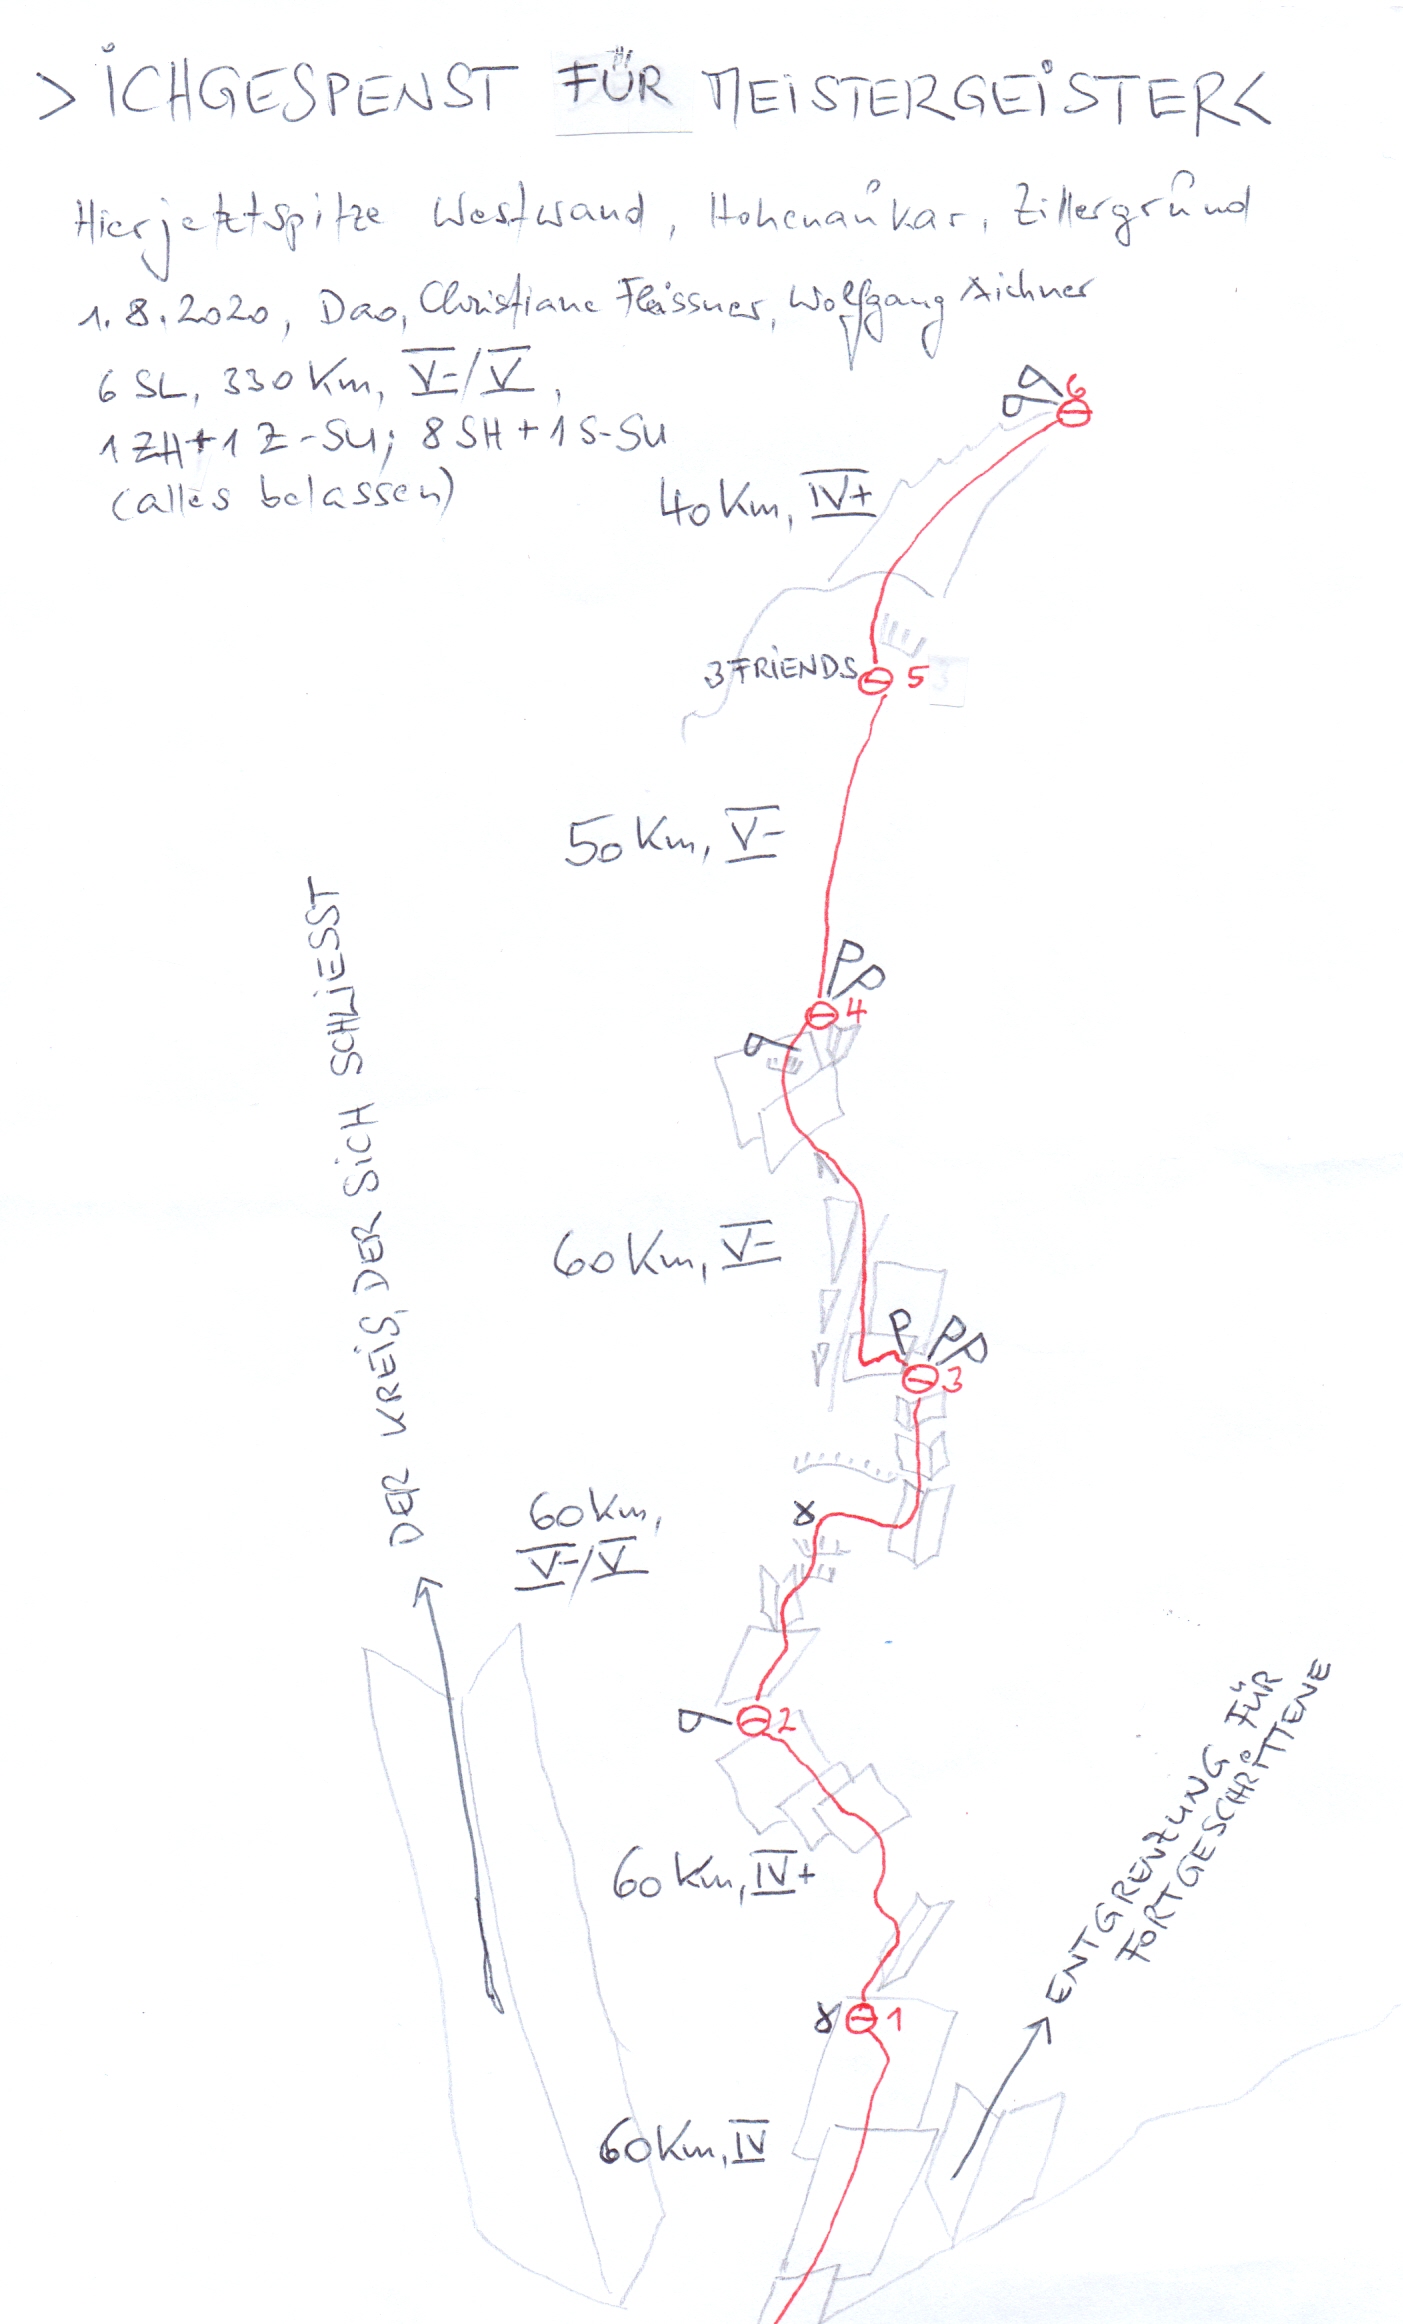 > ICHGESPENST FÜR MEISTERGEISTER<
Hierjetztspitze Westwand, Hohenaukar, Zillergrund
1.8.2020, Dao, Christiane Fleissner, Wolfgang Aichner
6 SL, 330 Km, V-/V,
1 ZH+1 Z-SU; 8 SH+1 S-SU
(alles belassen)
6
40 Km, IV+
3 FRIENDS
5
50 Km, V-
4
DER KREIS, DER SICH SCHLIESST
60 Km, V-
3
60 Km,
V-/V
2
ENTGRENZUNG FÜR
FORTGESCHRITTENE
60 Km, IV+
1
60 Km, IV